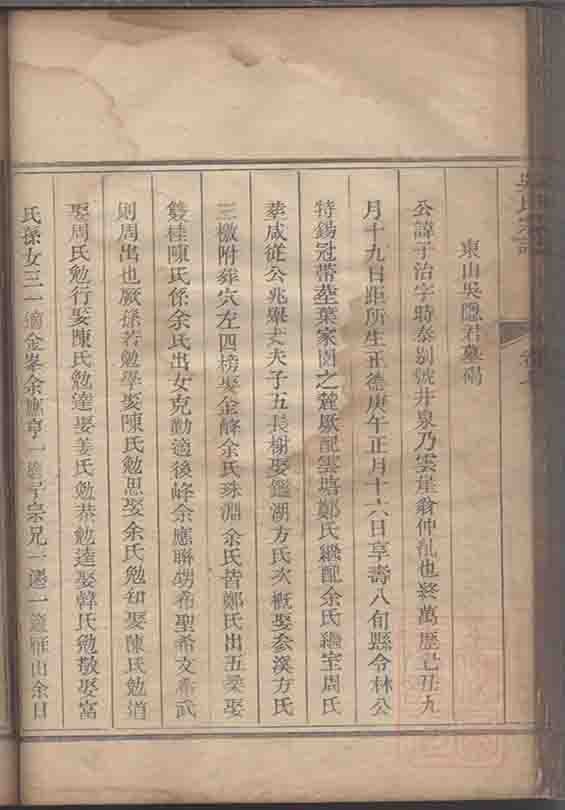 東山吳隱君墓碣
公諱子治字時泰別號井泉乃雲崖翁仲亂也終萬歷己丑九
月十九日距所生正德庚午正月十六日享壽八旬縣令林公
特錫冠帶塟葉家園之麓厥配雲塘鄭氏繼配余氏繼室周氏
塟咸從公兆舉丈夫子五長榭娶鑑湖方氏次概娶泰溪方氏
三檄附葬穴左四榜娶金峰余氏珠淵余氏皆鄭氏出五梁娶
雙桂陳氏係余氏出女克勤適後峰余應聯甥希聖希文希武
則周出也厥孫若勉學娶陳氏勉思娶余氏勉知娶陳氏勉道
娶周氏勉行娶陳氏勉達娶姜氏勉恭勉逵娶韓氏勉敬娶富
氏孫女三一適金峯余應亨一適予宗兄一遷一適雁山余日